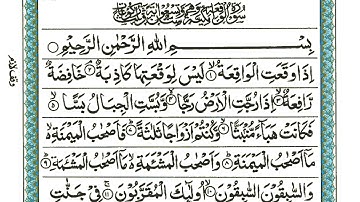 بِسْمِ اللهِ الرَّحْمٰنِ الرَّحِيْمِ
اِذَا وَقَعَتِ الْوَاقِعَةُ ۙ لَيْسَ لِوَقْعَتِهَا كَاذِبَةٌ ۘ خَافِضَةٌ
رَّافِعَةٌ ۙ اِذَا رُجَّتِ الْاَرْضُ رَجًّا ۙ وَّبُسَّتِ الْجِبَالُ بَسًّا ۙ
فَكَانَتْ هَبَآءً مُّنْۢبَثًّا ۙ وَّكُنْتُمْ اَزْوَاجًا ثَلٰثَةً ؕ فَاَصْحٰبُ الْمَيْمَنَةِ ۙ
مَاۤ اَصْحٰبُ الْمَيْمَنَةِ ؕ وَاَصْحٰبُ الْمَشْـَٔمَةِ ۙ مَاۤ اَصْحٰبُ الْمَشْـَٔمَةِ ؕ
وَالسّٰبِقُوْنَ السّٰبِقُوْنَ ۙ اُولٰٓئِكَ الْمُقَرَّبُوْنَ ۚ فِيْ جَنّٰتِ